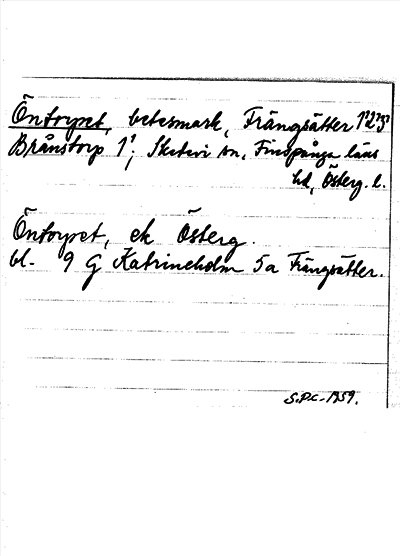 Öntorpet, betesmark, Frängsätter 1¹2²3¹
Brånstorp 1¹; Skedevi sn, Finspånga läns
hd, Österg. l.
Öntorpet, ek Österg.
bl. 9 G Katrineholm 5a Frängsätter.
S.P.C. 1959.